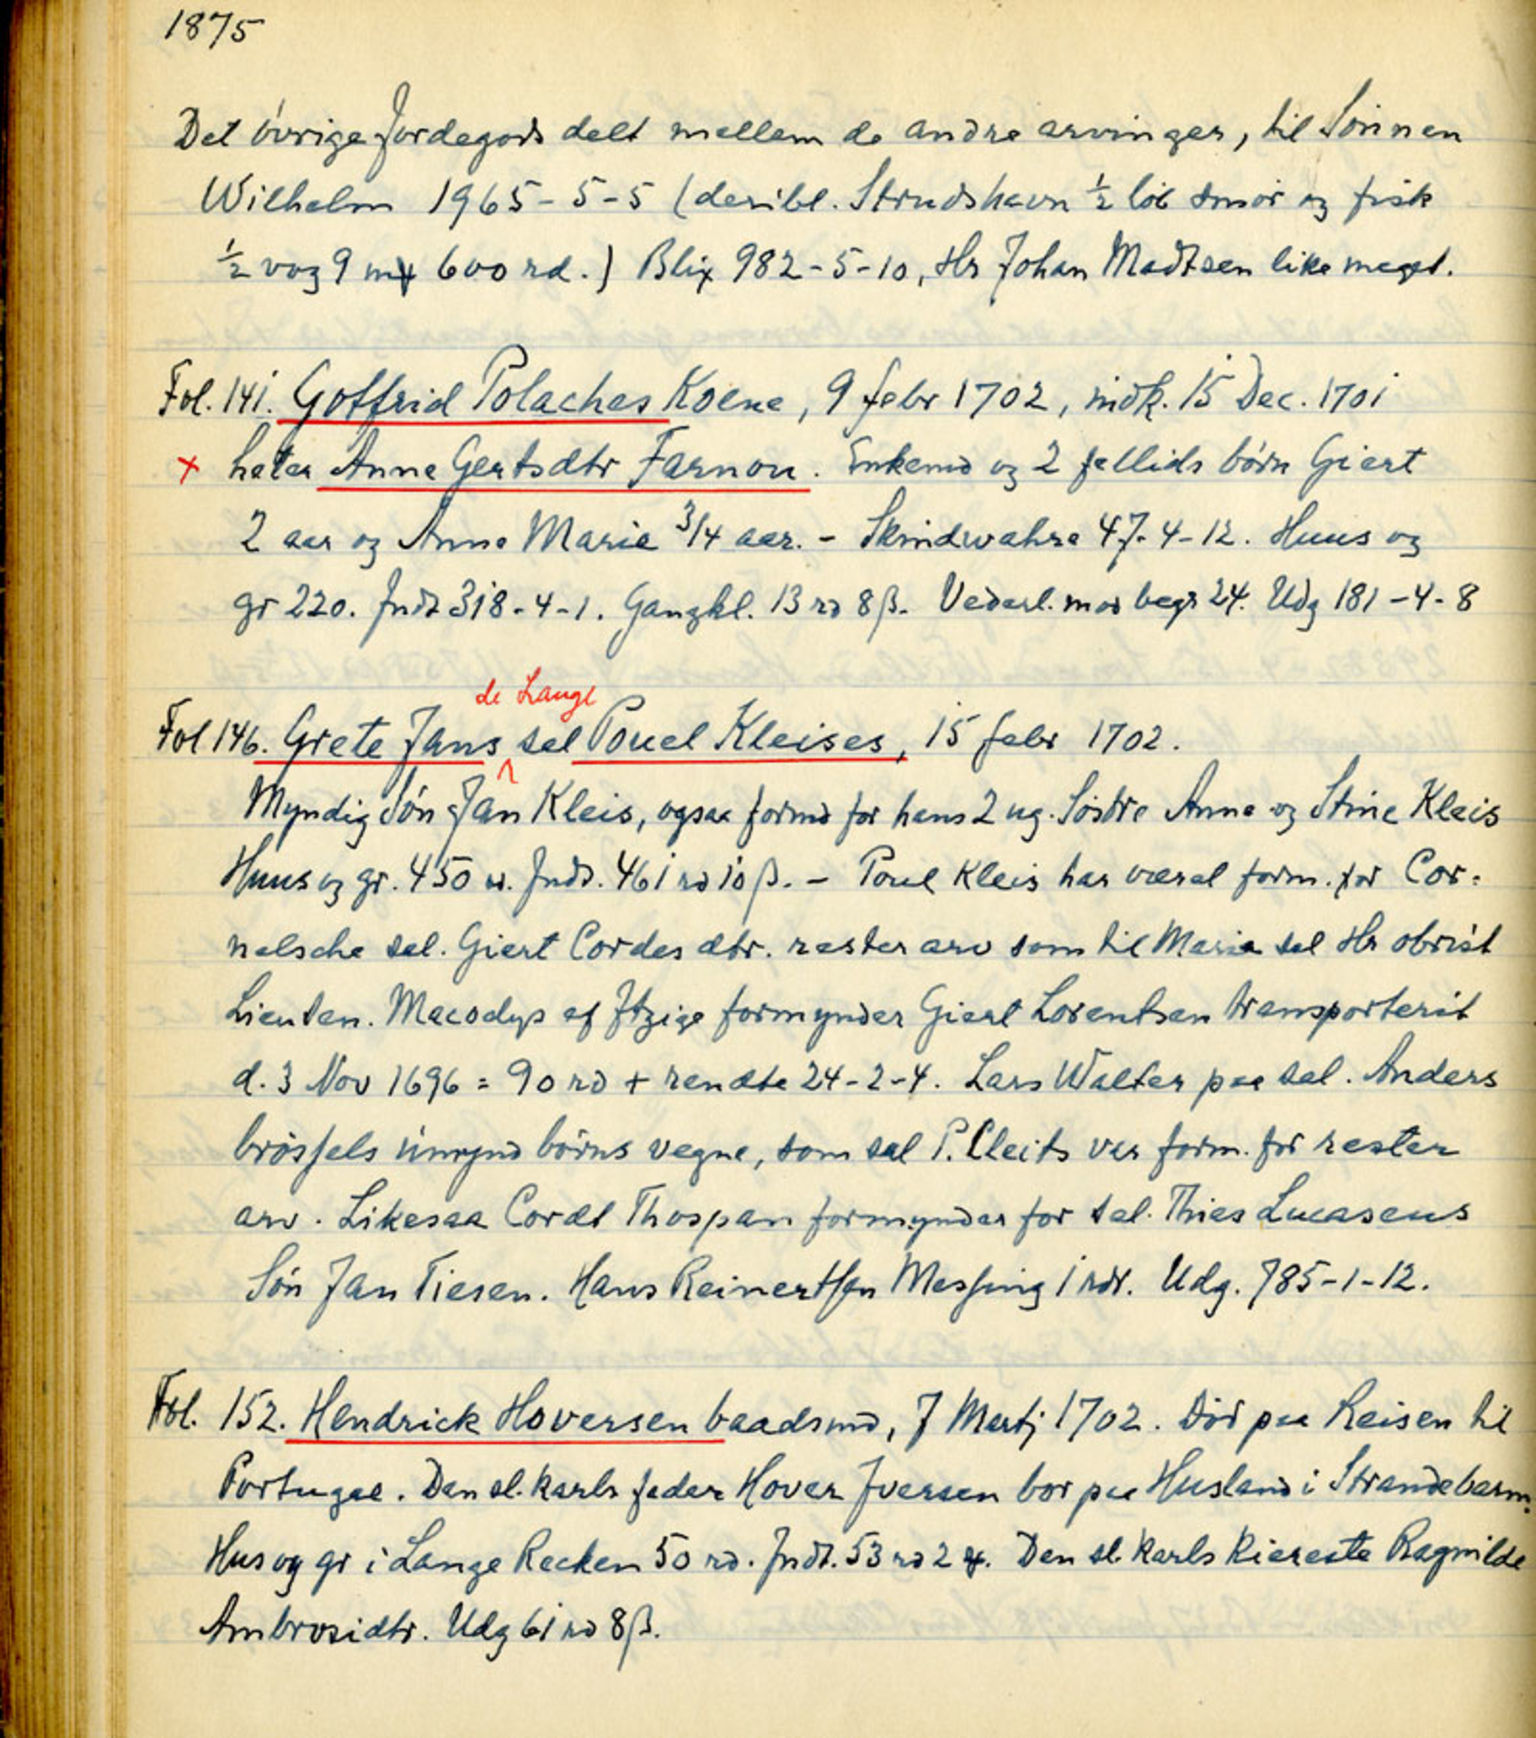 1875
Det övrige Jordegods delt mellem de andre arvinger, til Sönnen
Wilhelm 1965-5-5 (deribl. Strudshavn ½ löb smör og fisk
½ vog 9 mk 600 rd.) Blix 982-5-10, Hr Johan Madtsen like meget.
Fol. 141. Gotfrid Polaches Kone, 9 febr 1702, indk. 15 Dec. 1701
x heter Anne Gertsdtr Farnou. Enkemd og 2 fellids börn Giert
2 aar og Anne Marie 3/4 aar. - Skindwahre 47-4-12. Huus og
gr 220. Indt 318-4-1. Gangkl. 13 rd 8 ß. Vederl. mod begr 24. Udg 181-4-8
de Lange
Fol 146. Grete Jans sel Pouel Kleises, 15 febr 1702.
Myndig Sön Jan Kleis, ogsaa formd for hans 2 ug. Söstre Anne og Stine Kleis
Huus og gr. 450 rd. Indt. 461 rd 10 ß. - Poul Kleis har væral form. for Cor-
nelsche sal. Giert Cordes dtr. rester arv som til Maria sal Hr obrist
Lieuten. Macodys af Itzige formynder Giert Lorentsen transporterit
d. 3 Nov 1696 = 90 rd + rendte 24-2-4. Lars Walter paa sal. Anders
brössels ümynd börns vegne, som sal P. Cleits var form. for rester
arv. Likesaa Cordt Thospan formynder for sal. Thies Lucasens
Sön Jan Tiesen. Hans Reinertsen Messing 1 rdr. Udg. 785-1-12.
Fol. 152. Hendrick Hoversen baadsmd, 7 Martj 1702. Död paa Reisen til
Portugal. Den sl. karls fader Hover Iversen bor paa Husland i Strandebarm.
Hus og gr i Lange Recken 50 rd. Indt. 53 rd 2 . Den sl. karls kiereste Ragnilde
Ambrosidtr. Udg 61 rd 8 ß.